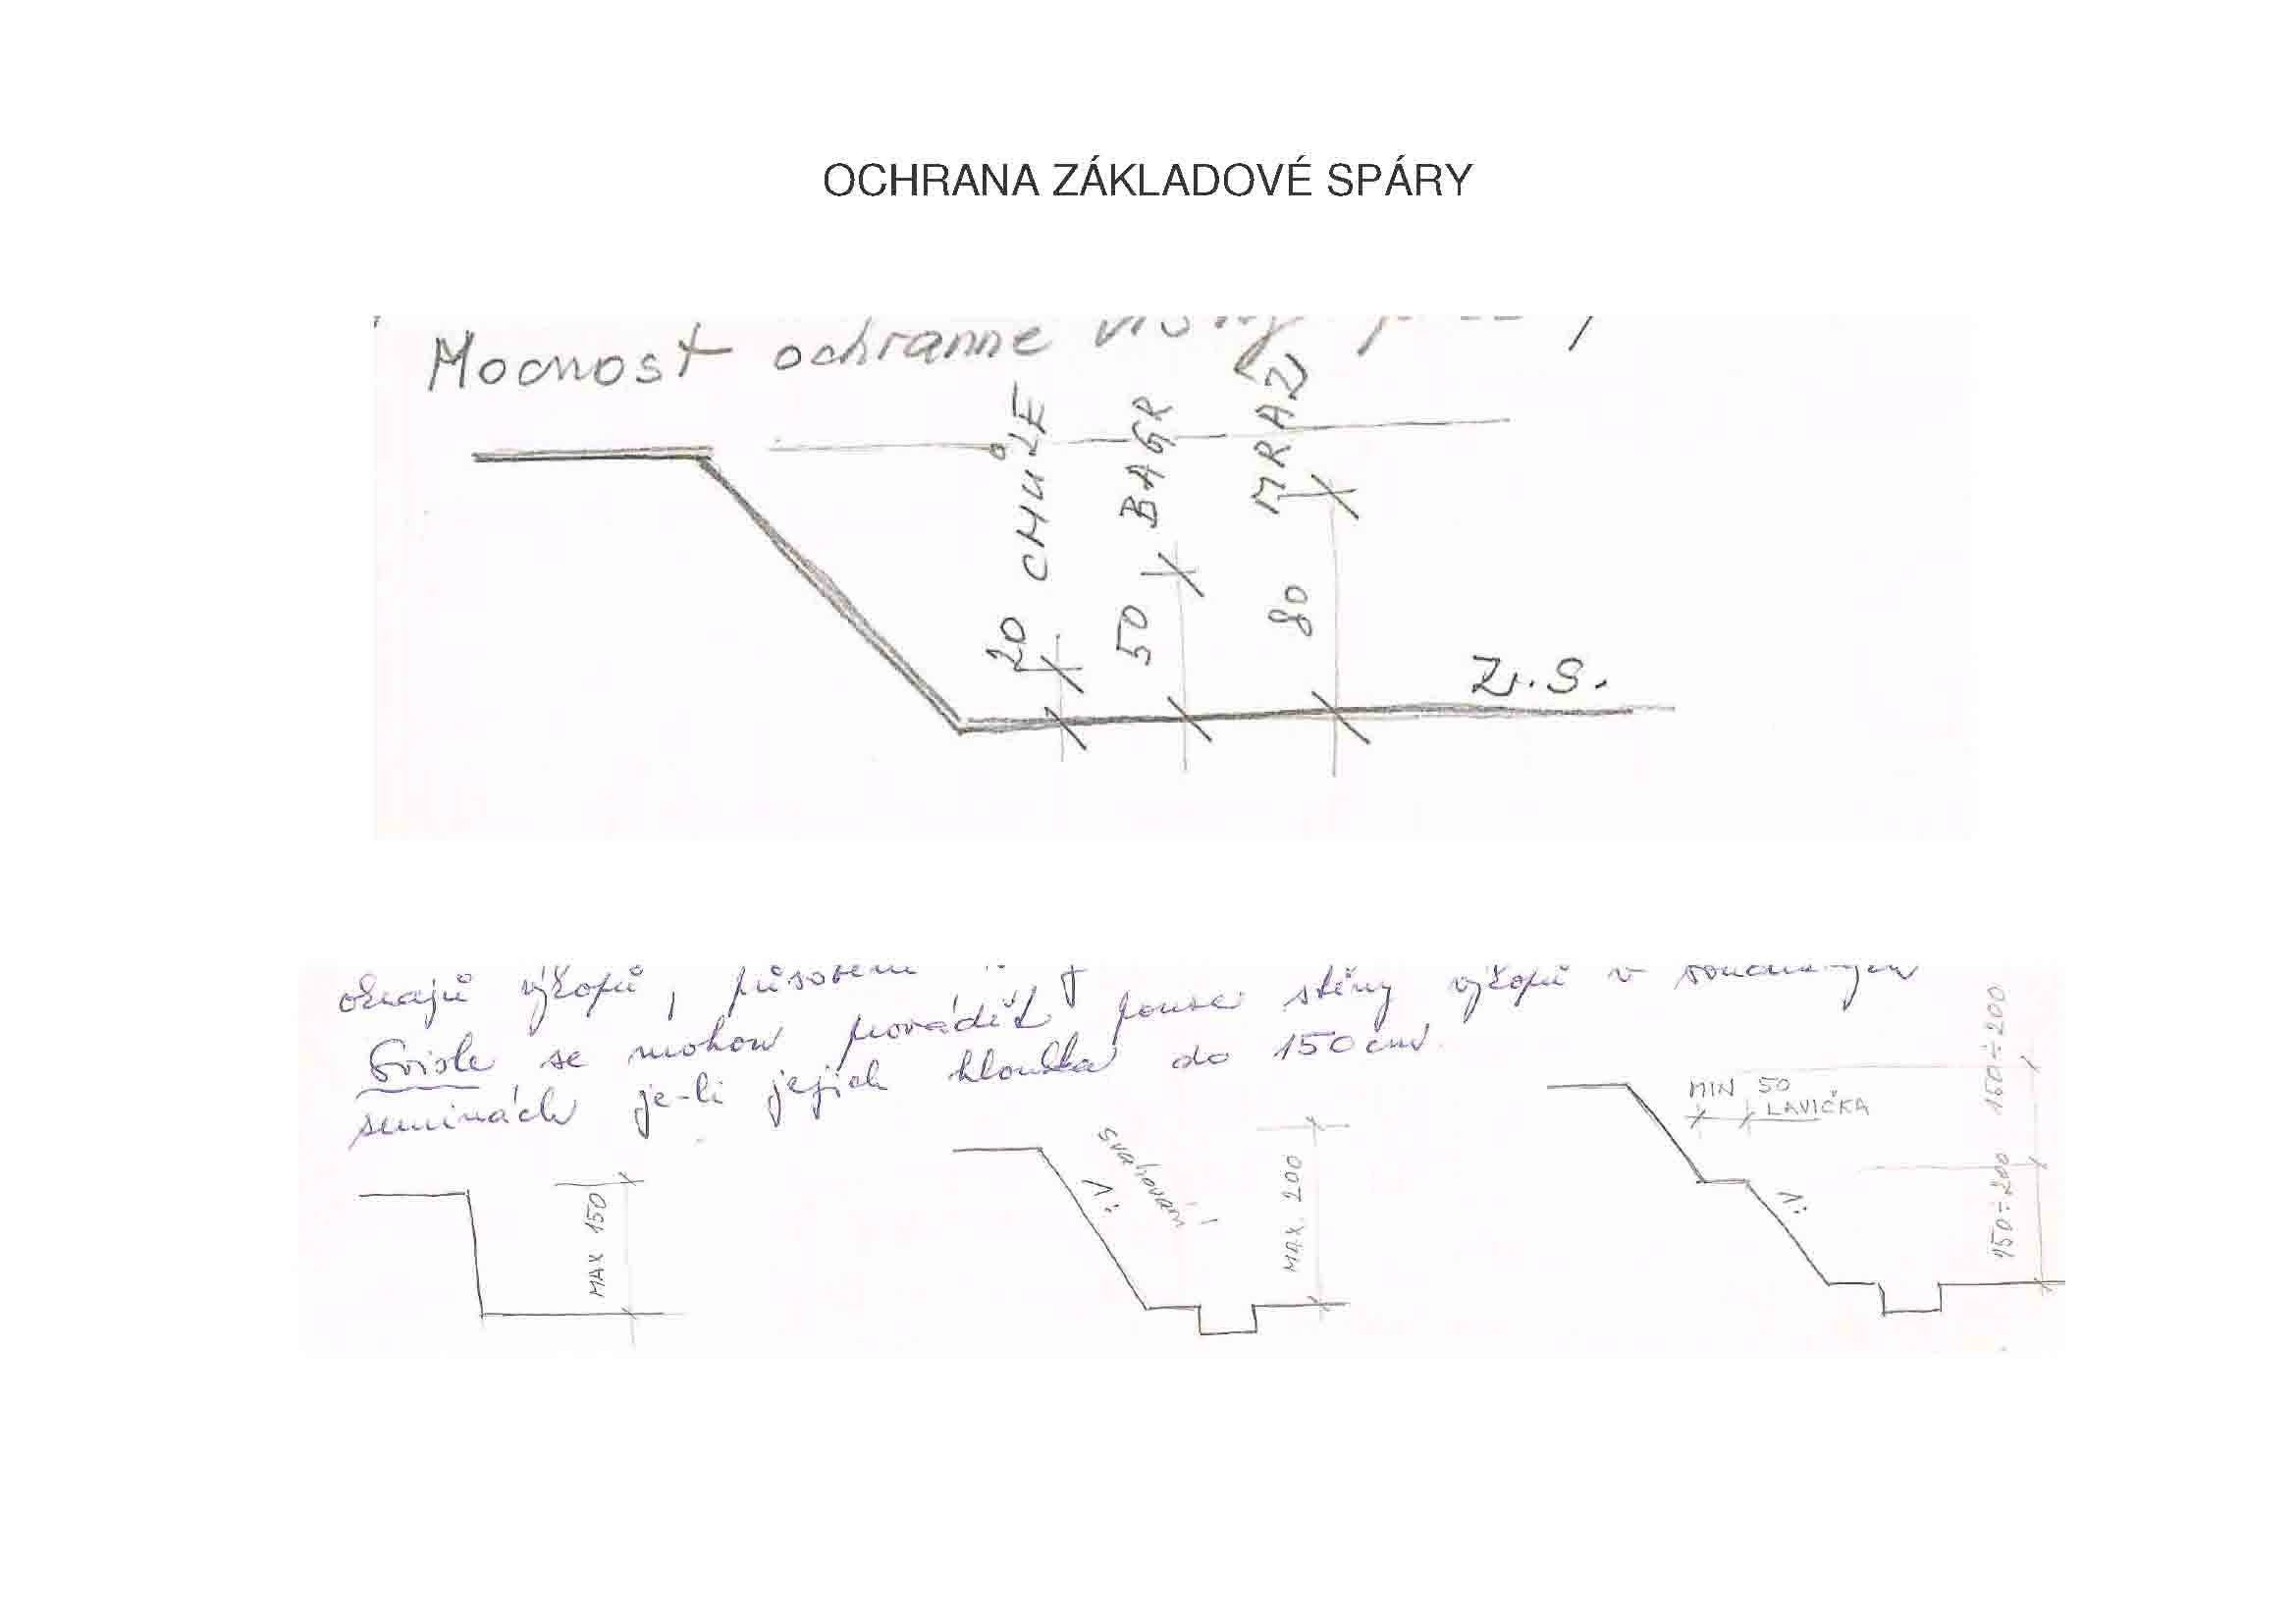 OCHRANA ZÁKLADOVÉ SPÁRY
Mocnost ochranne
20 CHůLE
50 BAGR
80 MRAZ
Z.S.
okrajů výkopů, působení
Svisle se mohou provádět pouze stěny výkopů v
zeminách je-li jejich hloubka do 150 cm
MAX 150
svahování
1:
MAX. 200
MIN 50
LAVIČKA
1:
150÷200
150÷200